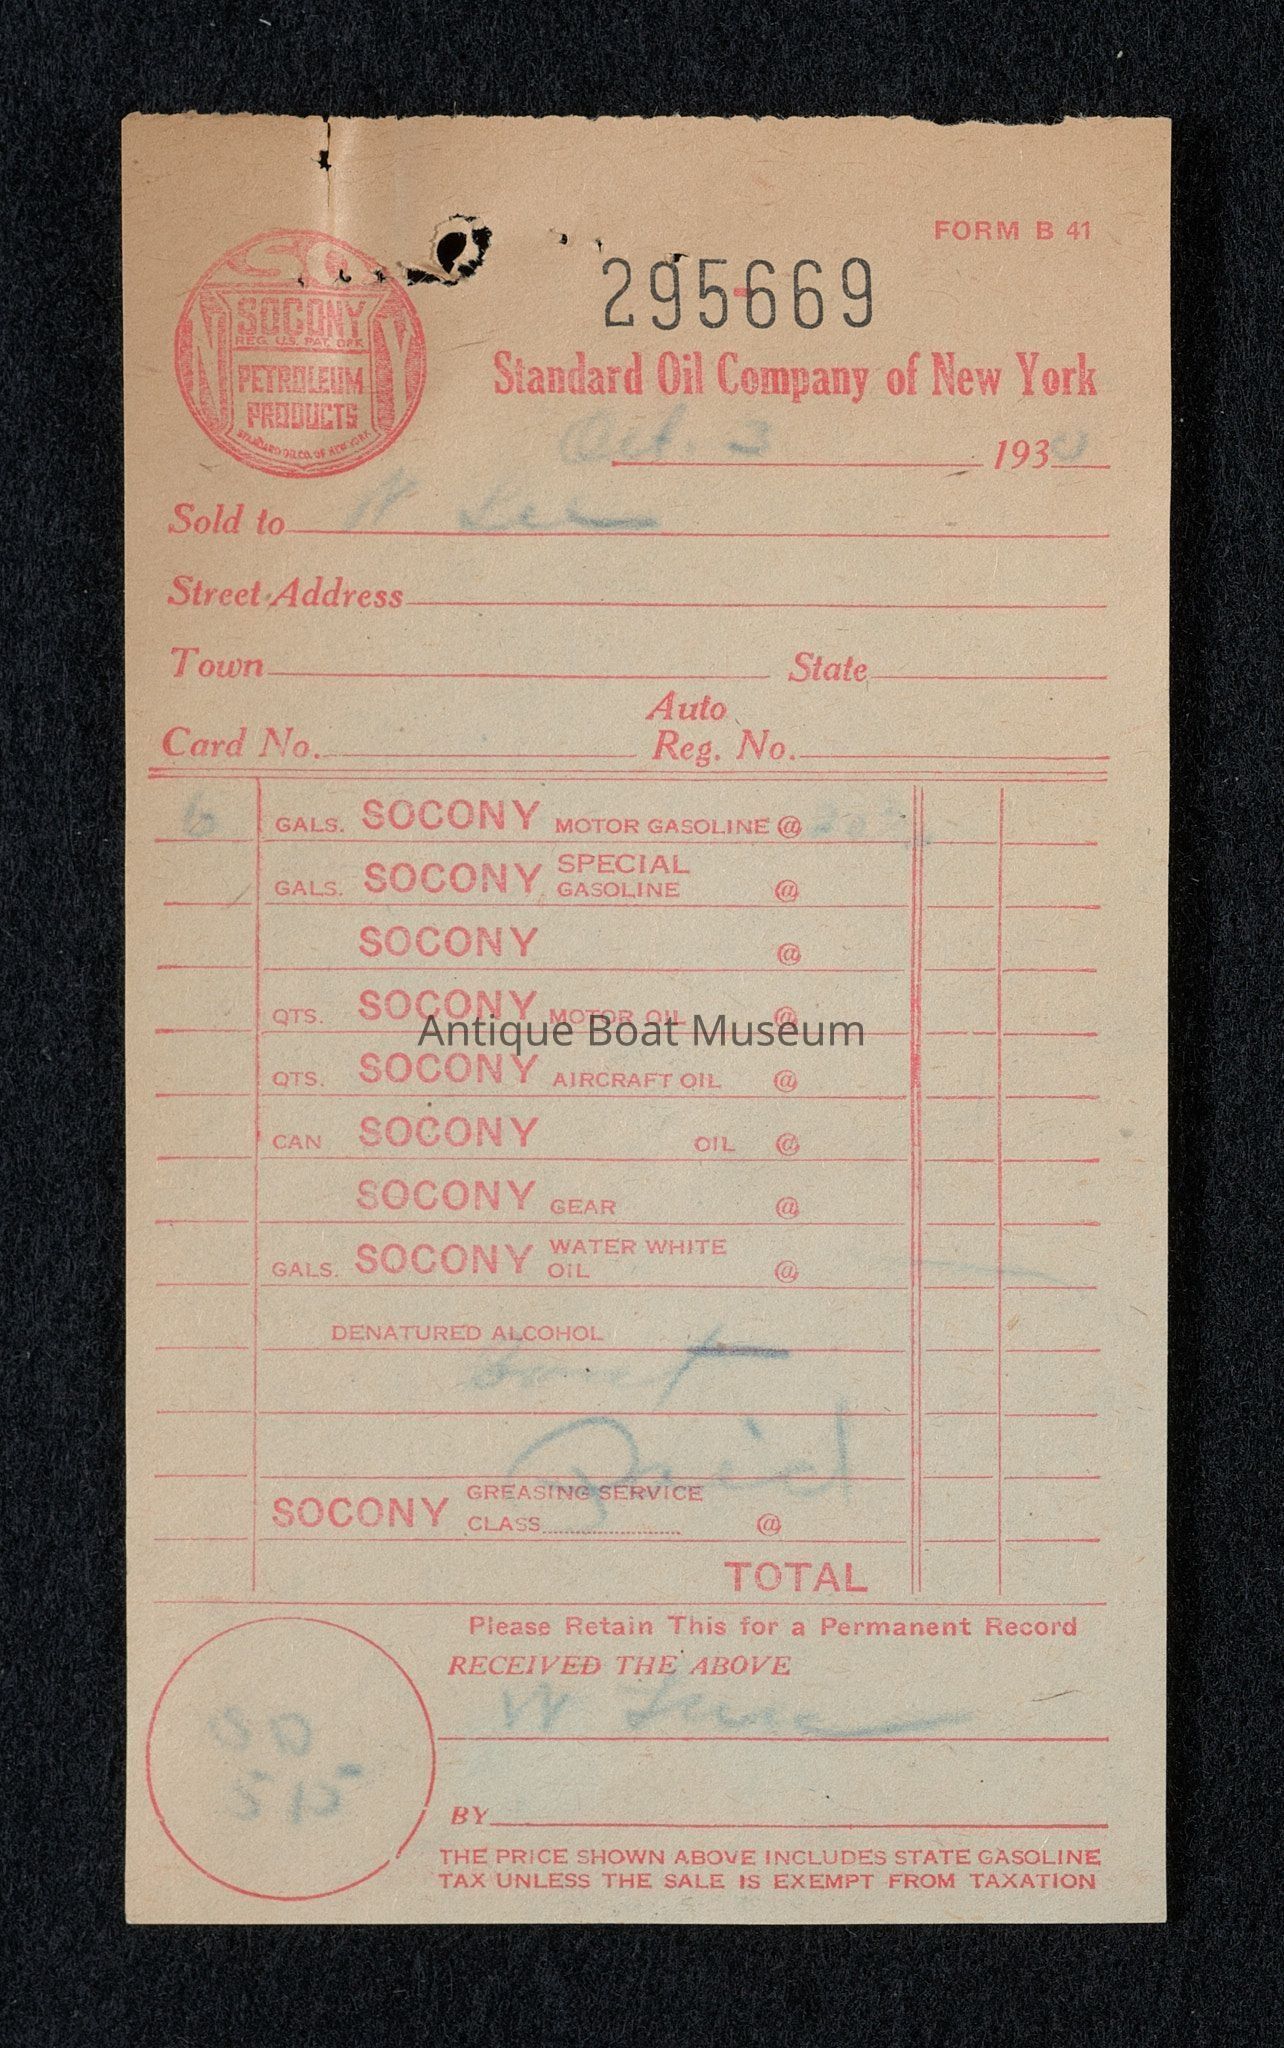 FORM B 41
295669
SO
N Y
SOCONY
REG. U.S. PAT. OFF.
PETROLEUM
PRODUCTS
STANDARD OIL CO. OF NEW YORK
Standard Oil Company of New York
Oct. 2 1930
Sold to W
Street Address
Town State
Auto
Card No. Reg. No.
6 GALS. SOCONY MOTOR GASOLINE @
GALS. SOCONY SPECIAL GASOLINE @
SOCONY @
QTS. SOCONY MOTOR OIL @
Antique Boat Museum
QTS. SOCONY AIRCRAFT OIL @
CAN SOCONY OIL @
SOCONY GEAR @
GALS. SOCONY WATER WHITE OIL @
DENATURED ALCOHOL
Paid
SOCONY GREASING SERVICE
CLASS @
TOTAL
Please Retain This for a Permanent Record
RECEIVED THE ABOVE
W
BY
THE PRICE SHOWN ABOVE INCLUDES STATE GASOLINE
TAX UNLESS THE SALE IS EXEMPT FROM TAXATION